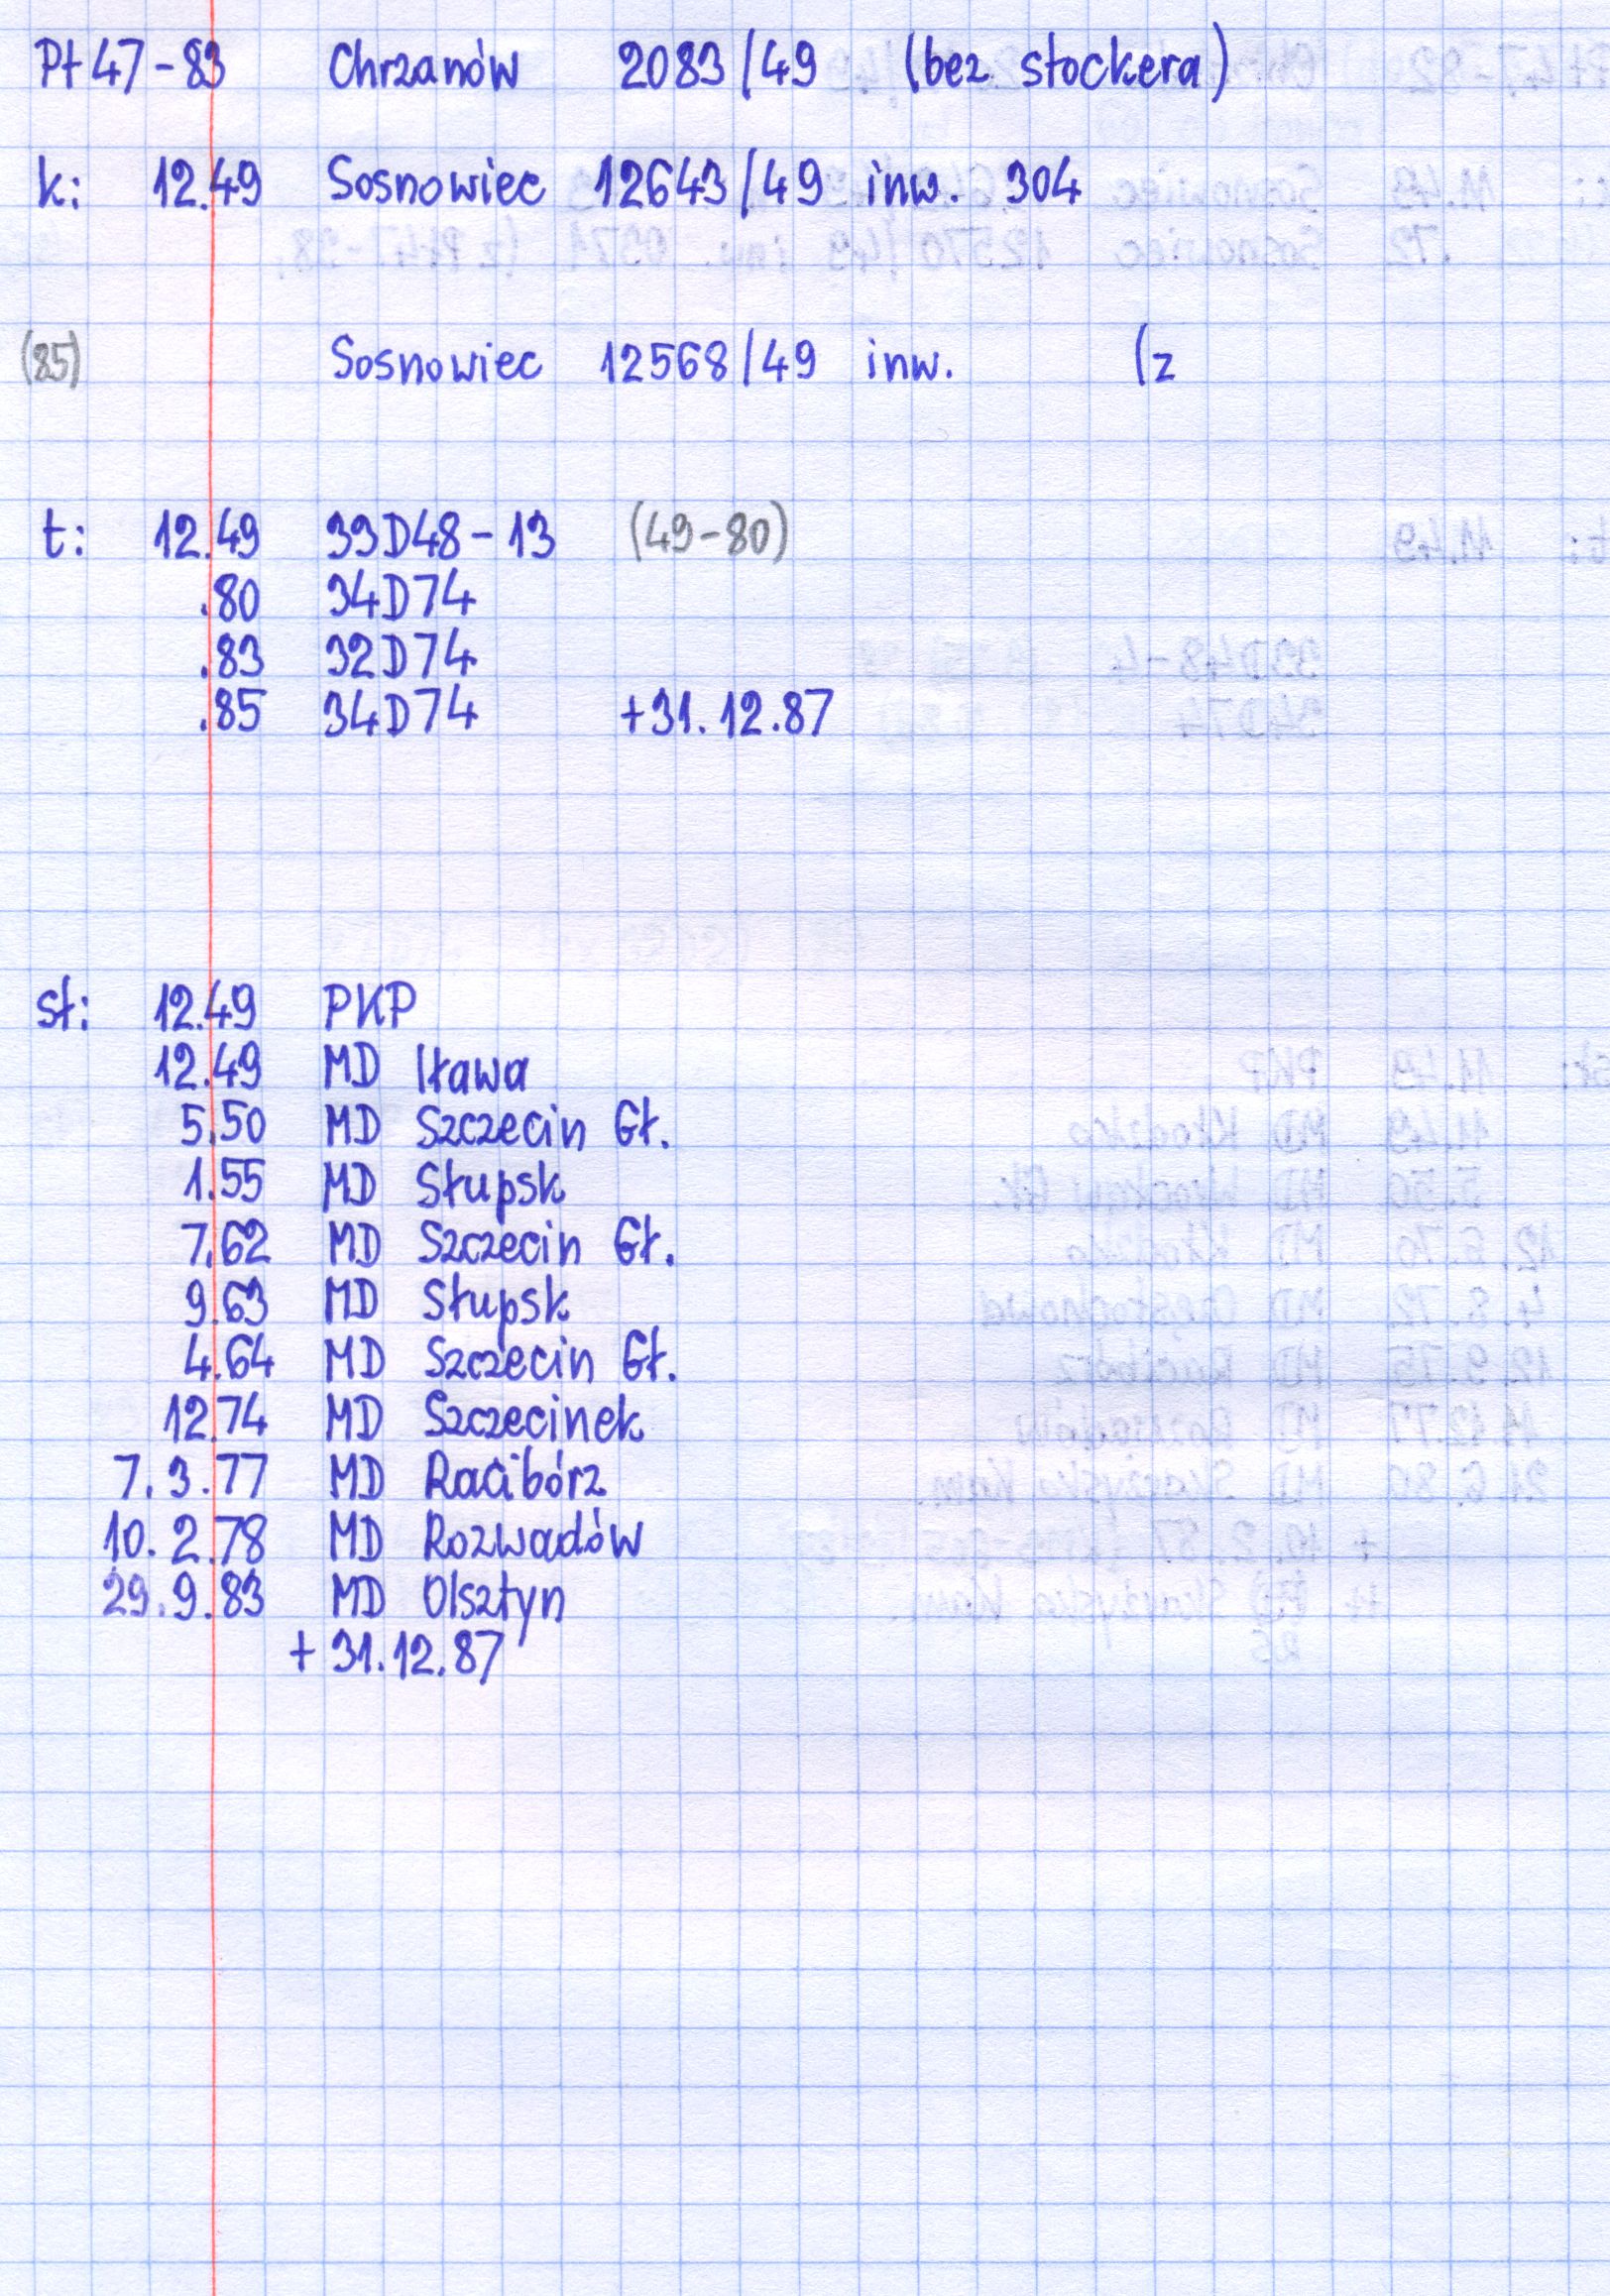 Pt47-83 Chrzanów 2083/49 (bez stockera)
k: 12.49 Sosnowiec 12643/49 inw. 304
(85) Sosnowiec 12568/49 inw. (z
t: 12.49 33D48-13 (49-80)
.80 34D74
.83 32D74
.85 34D74 +31.12.87
st: 12.49 PKP
12.49 MD Iława
5.50 MD Szczecin Gł.
1.55 MD Słupsk
7.62 MD Szczecin Gł.
9.63 MD Słupsk
4.64 MD Szczecin Gł.
12.74 MD Szczecinek
7.3.77 MD Racibórz
10.2.78 MD Rozwadów
29.9.83 MD Olsztyn
+ 31.12.87